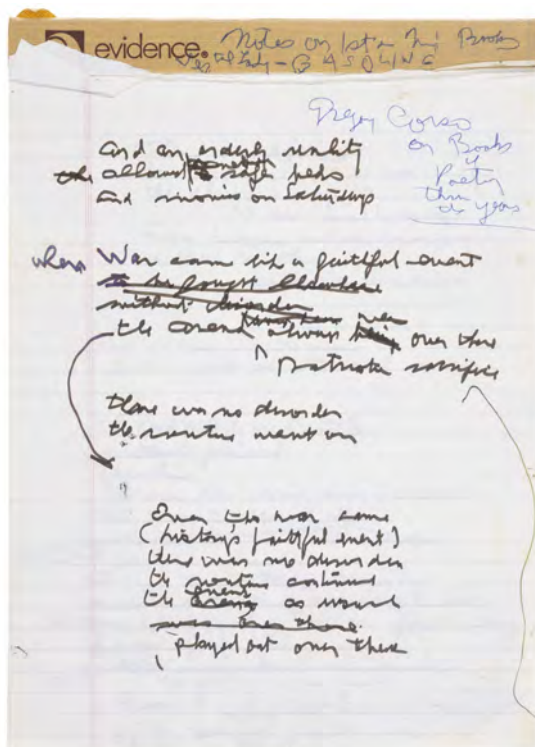 evidence.
Notes on 1st my Books
Vestal Lady - GASOLINE
Gregory Corso
on Books
of
Poetry
thru
the years
and an orderly reality
the allowed safe beds
and movies on Saturdays
when War came like a faithful event
to be fought elsewhere
without disorder
the arena always over there
Patriotic sacrifice
there was no disorder
the routine went on
Even tho war came
(history's faithful event)
there was no disorder
the routine continued
the event arena as usual
was over there
played out over there